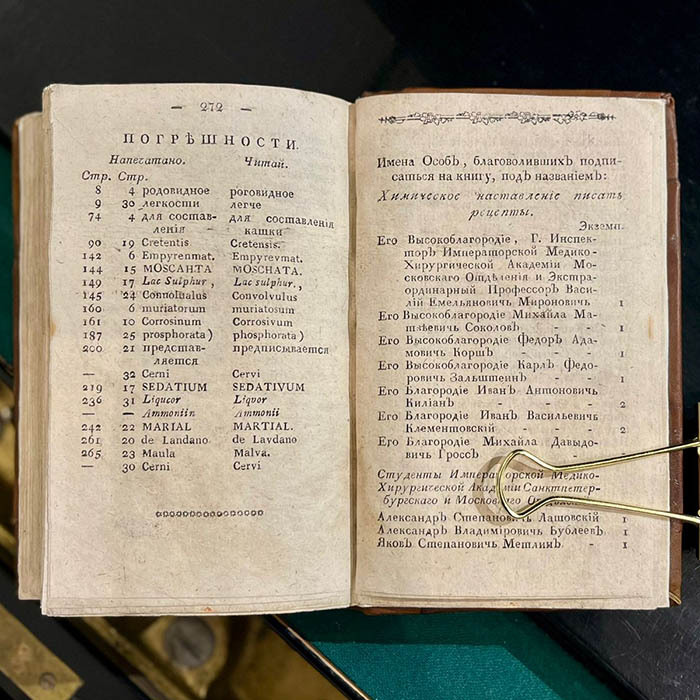 — 272 —
ПОГРѢШНОСТИ.
Напечатано. Читай.
Стр. Стр.
8 4 родовидное роговидное
9 30 легкости легче
74 4 для состав- для составленія
ленія кашки
90 19 Cretentis Cretensis.
142 6 Empyrenmat. Empyrevmat.
144 15 MOSCAHTA MOSCHATA.
149 17 Lac Sulphur, Lac sulphur.,
145 24 Connolualus Convolvulus
160 6 muriatorum muriatosum
161 10 Corrosinum Corrosivum
187 25 prosphorata) phosphorata)
200 21 представ- предписывается
ляется
— 32 Cerni Cervi
219 17 SEDATIUM SEDATIVUM
236 31 Liqucor Liquor
— — Ammoniin Ammonii
242 22 MARIAL MARTIAL.
261 20 de Landano de Lavdano
265 23 Maula Malva.
— 30 Cerni Cervi
Имена Особъ, благоволившихъ подпи-
саться на книгу, подъ названіемъ:
Химическое наставленіе писать
рецепты.
Экземп.
Его Высокоблагородіе, Г. Инспек-
торъ Императорской Медико-
Хирургической Академіи Мо-
сковскаго Отдѣленія и Экстра-
ординарный Профессоръ Васи-
лій Емельяновичь Мироновичь 1
Его Высокоблагородіе Михайла Ма-
тѣевичь Соколовъ - - - 1
Его Высокоблагородіе Федоръ Ада-
мовичь Коршъ - - - 1
Его Высокоблагородіе Карлъ Федо-
ровичь Зальштеинъ - - 1
Его Благородіе Иванъ Антоновичь
Киліанъ - - - - 2
Его Благородіе Иванъ Васильевичь
Клементовскій - - - 2
Его Благородіе Михайла Давыдо-
вичь Гроссъ - -
Студенты Императорской Медико-
Хирургической Академіи Санктпетер-
бургскаго и Московскаго
Александръ Степановичь Лашовскій 1
Александръ Владиміровичь Бублеевъ 1
Яковъ Степановичь Метлинъ - 1